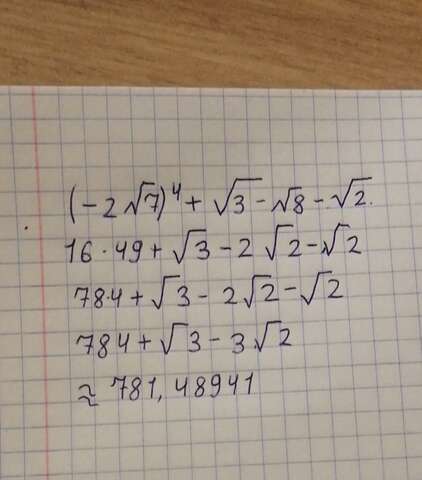 (-2√7)⁴ + √3 - √8 - √2.
16 · 49 + √3 - 2√2 - √2
78·4 + √3 - 2√2 - √2
784 + √3 - 3√2
≈ 781,48941